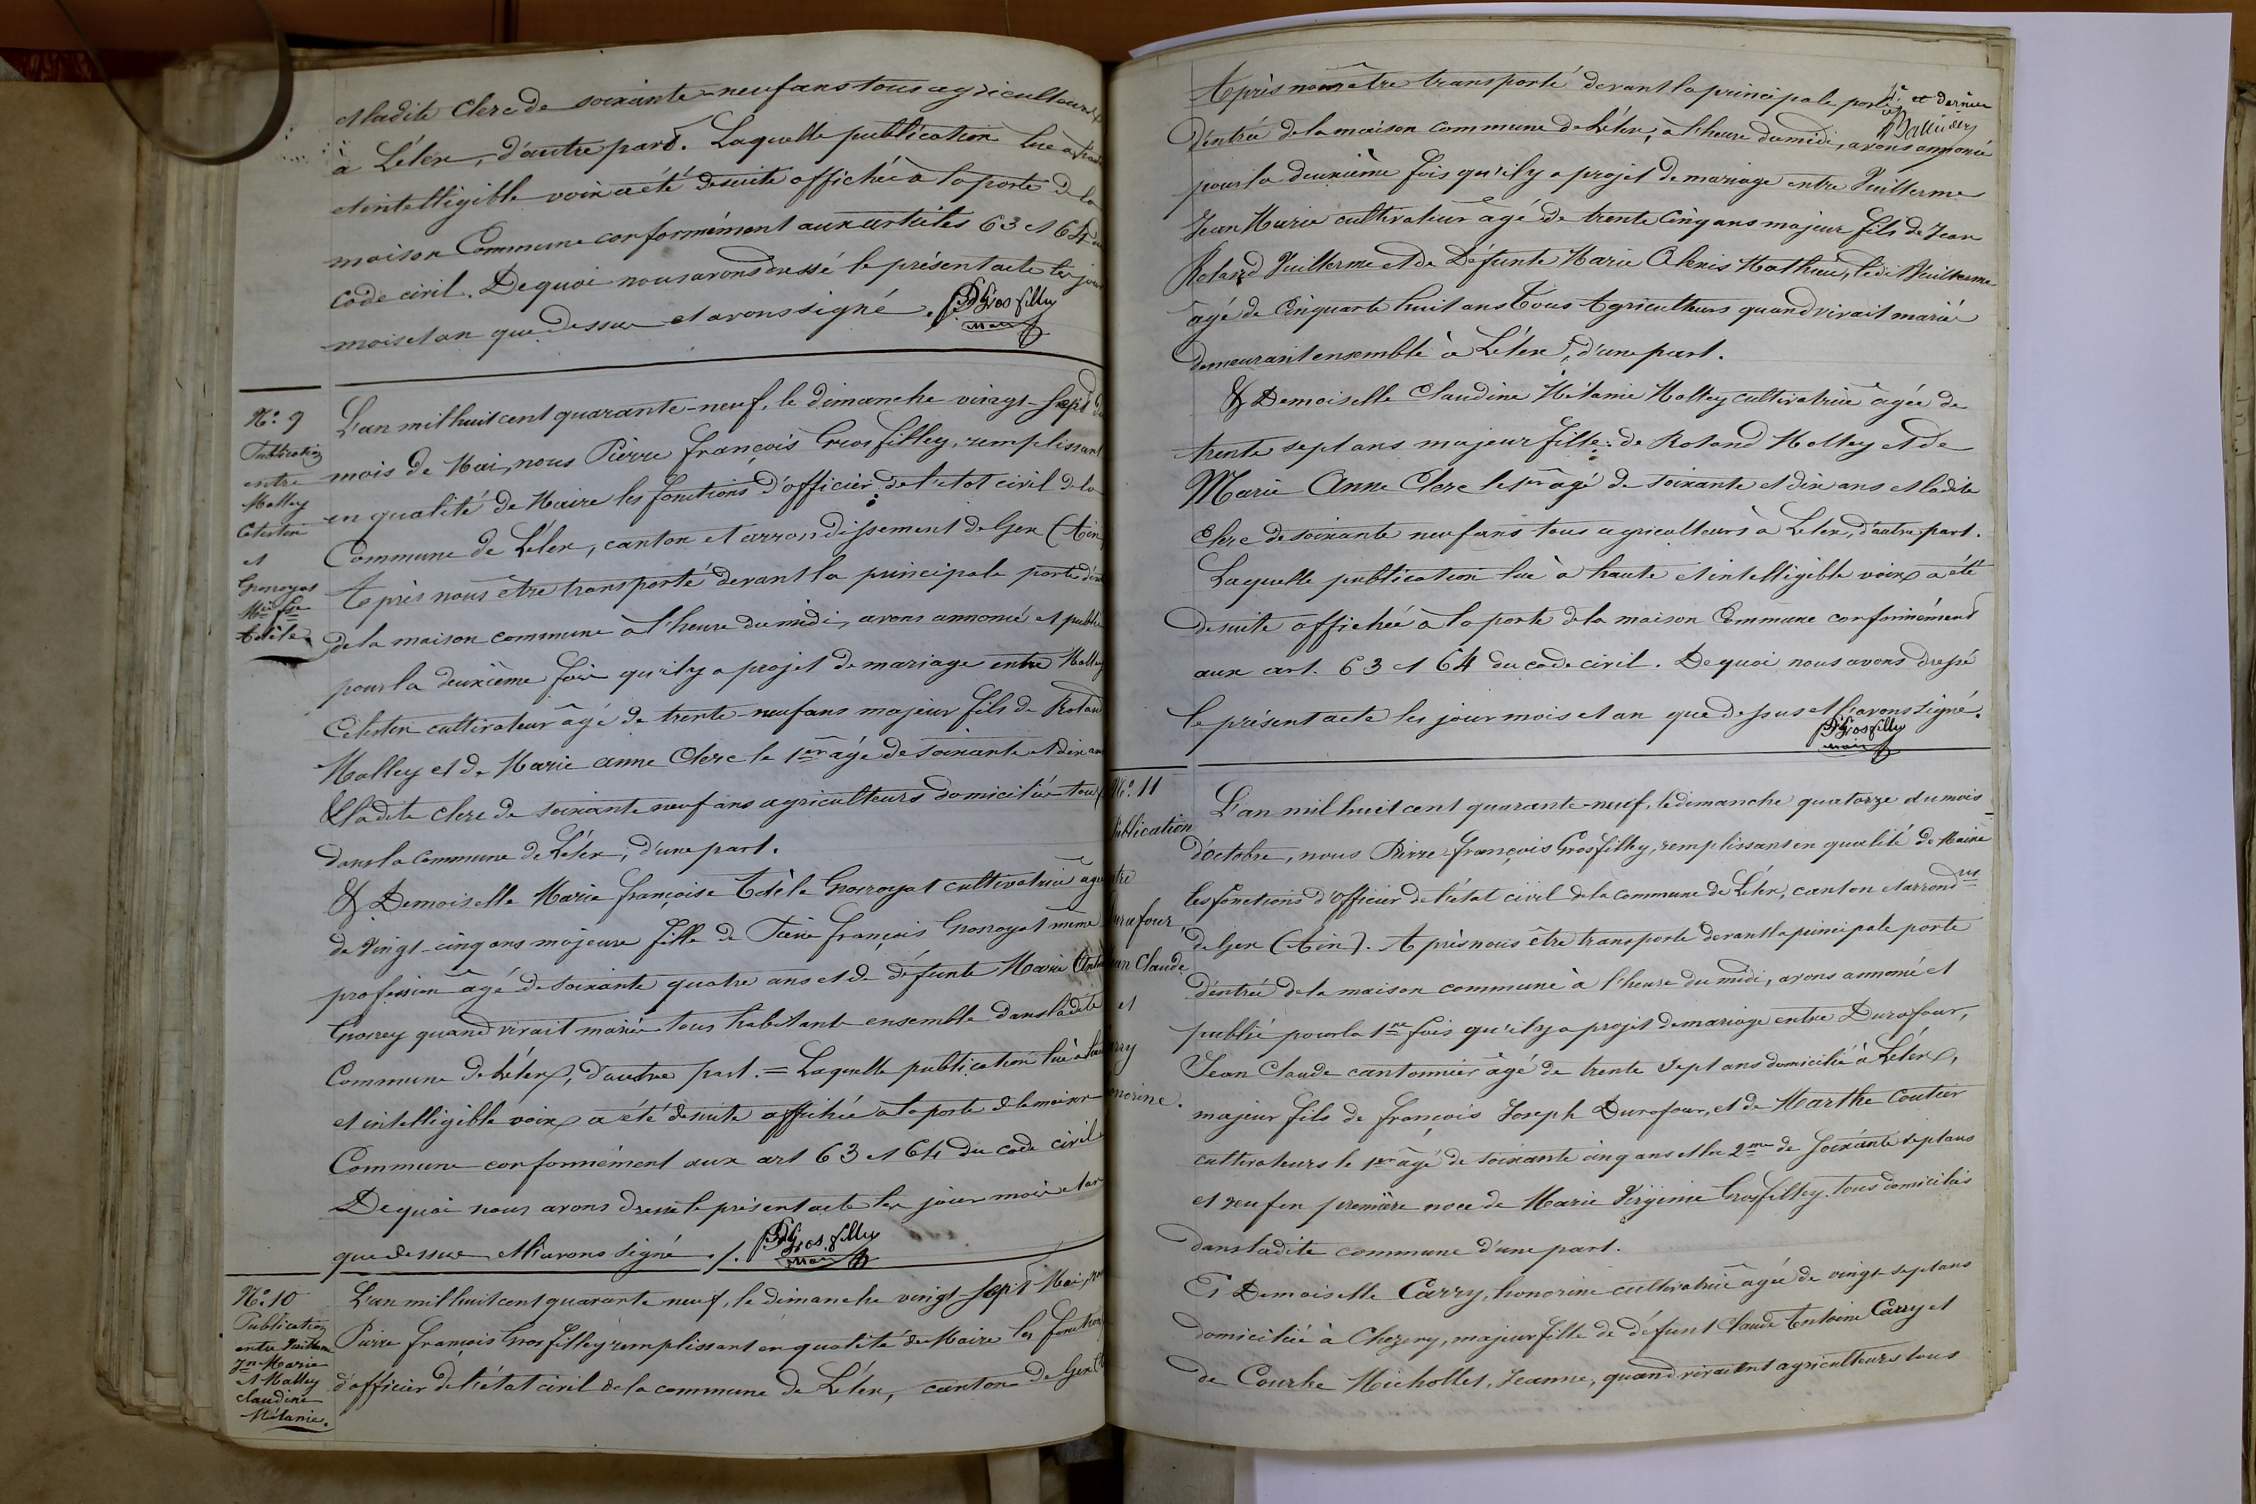 et ladite Clerc de soixante-neuf ans tous agriculteurs
à Lélex, d'autre part. Laquelle publication lue à haute
et intelligible voix a été desuite affichée à la porte de la
maison Commune conformément aux articles 63 et 64 du
Code civil. De quoi nous avons dressé le présent acte les jour
mois et an que dessus et avons signé. Grosfilley
Maire
N.° 9
Publication
entre
Molley
Célestin
et
Grosroyat
Mie fse
Adèle
L'an mil huit cent quarante-neuf, le dimanche vingt-sept du
mois de Mai, nous Pierre François Grosfilley, remplissant
en qualité de Maire les fonctions d'officier de l'état civil de la
Commune de Lélex, canton et arrondissement de Gex (Ain
Après nous etre transporté devant la principale porte
de la maison commune à l'heure du midi, avons annoncé et publié
pour la deuxième fois qu'il y a projet de mariage entre Molley
Célestin cultivateur âgé de trente-neuf ans majeur fils de Roland
Molley et de Marie anne Clerc le 1er âgé de soixante et dix ans
& ladite clerc de soixante neuf ans agriculteurs domiciliés tous
dans la Commune de Lélex, d'une part.
& Demoiselle Marie françoise Adèle Grosroyat cultivatrice agée
de vingt-cinq ans majeure fille de Pierre François Grosroyat même
profession âgé de soixante quatre ans et de défunte Marie
Grosrey quand vivait mariée tous habitants ensemble dans ladite
Commune de Lélex, d'autre part. = Laquelle publication lue à haute
et intelligible voix a été desuite affichée à la porte de la maison
Commune conformément aux art 63 et 64 du code civil
De quoi nous avons dressé le présent acte les jour mois et an
que dessus et l'avons signé ./. Grosfilley
Maire
N.° 10
Publication
entre Vuillerme
Jn Marie
et Molley
Claudine
Mélanie.
L'an mil huit cent quarante neuf, le dimanche vingt-sept Mai, nous
Pierre François Grosfilley remplissant en qualité de Maire les fonctions
d'officier de l'état civil de la commune de Lélex, canton de Gex
4e et dernier
Après nous être transporté devant la principale porte
d'entrée de la maison commune de Lélex, à l'heure du midi, avons annoncé
pour la deuxième fois qu'il y a projet de mariage entre Vuillerme
Jean Marie cultivateur âgé de trente cinq ans majeur fils de Jean
Roland Vuillerme et de Défunte Marie Alexis Mathieu, ledit Vuillerme
âgé de Cinquante huit ans tous Agriculteurs quand vivait mariée
demeurant ensemble à Lélex, d'une part.
& Demoiselle Claudine Mélanie Molley cultivatrice agée de
trente sept ans majeur fille de Roland Molley et de
Marie Anne Clerc le 1er âgé de soixante et dix ans et ladite
Clerc de soixante neuf ans tous agriculteurs à Lelex, d'autre part.
Laquelle publication lue à haute et intelligible voix a été
desuite affichée à la porte de la maison Commune conformément
aux art. 63 et 64 du code civil. De quoi nous avons dressé
le présent acte les jour mois et an que dessus et l'avons signé.
Grosfilley
maire
N.° 11
Publication
entre
Durafour,
Jean Claude
et
Carry
honorine.
L'an mil huit cent quarante-neuf, le dimanche quatorze du mois
d'octobre, nous Pierre-françois Grosfilley, remplissant en qualité de Maire
les fonctions d'officier de l'état civil de la commune de Lélex, canton et arrondnt
de Gex (Ain). Après nous être transporté devant la principale porte
d'entrée de la maison commune à l'heure du midi, avons annoncé et
publié pour la 1re fois qu'il y a projet de mariage entre Durafour,
Jean Claude cantonnier âgé de trente sept ans domicilié à Lélex,
majeur fils de françois Joseph Durafour, et de Marthe Coutier
cultivateurs le 1er âgé de soixante cinq ans et la 2me de soixante sept ans
et veuf en première noce de Marie Virginie Grosfilley tous domiciliés
dans ladite commune d'une part.
Et Demoiselle Carry, honorine cultivatrice agée de vingt-sept ans
domiciliée à Chezery, majeur fille de défunt Claude Antoine Carry et
de Courhe Michollet, Jeanne, quand vivaient agriculteurs tous